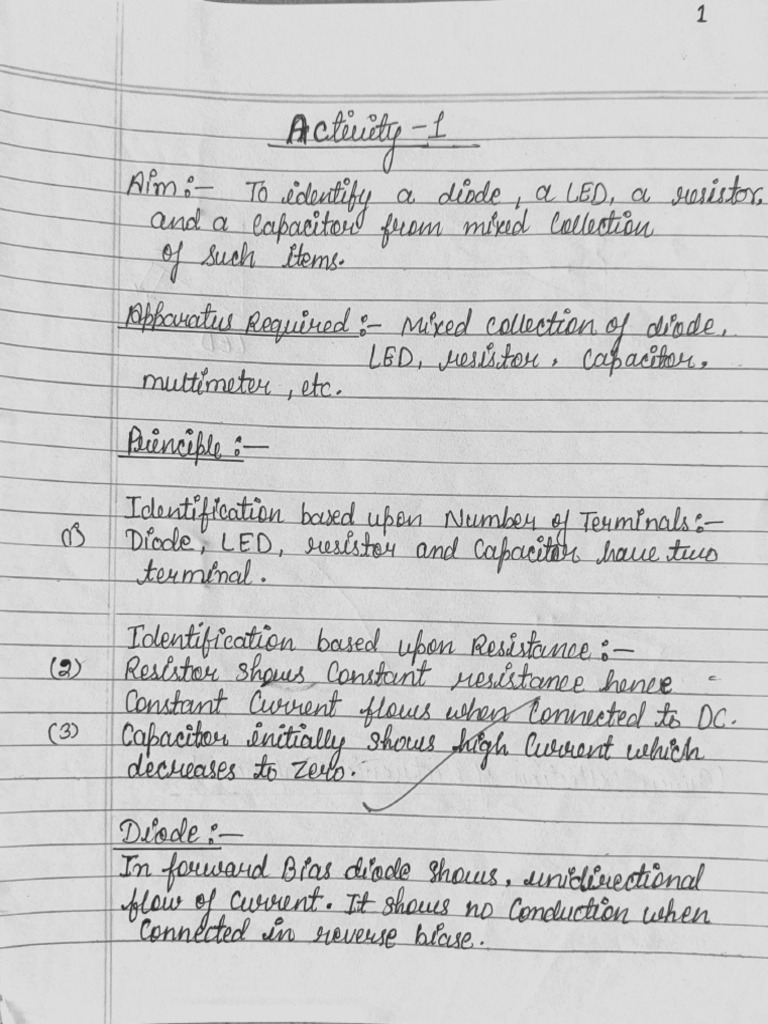 1
Activity-1
Aim:- To identify a diode, a LED, a resistor,
and a capacitor from mixed collection
of such items.
Apparatus Required:- Mixed collection of diode,
LED, resistor, capacitor,
multimeter, etc.
Principle:-
Identification based upon Number of Terminals:-
(1) Diode, LED, resistor and capacitor have two
terminal.
Identification based upon Resistance:-
(2) Resistor shows Constant resistance hence
Constant Current flows when Connected to DC.
(3) Capacitor initially shows high Current which
decreases to zero.
Diode:-
In forward Bias diode shows, unidirectional
flow of current. It shows no Conduction when
Connected in reverse biase.